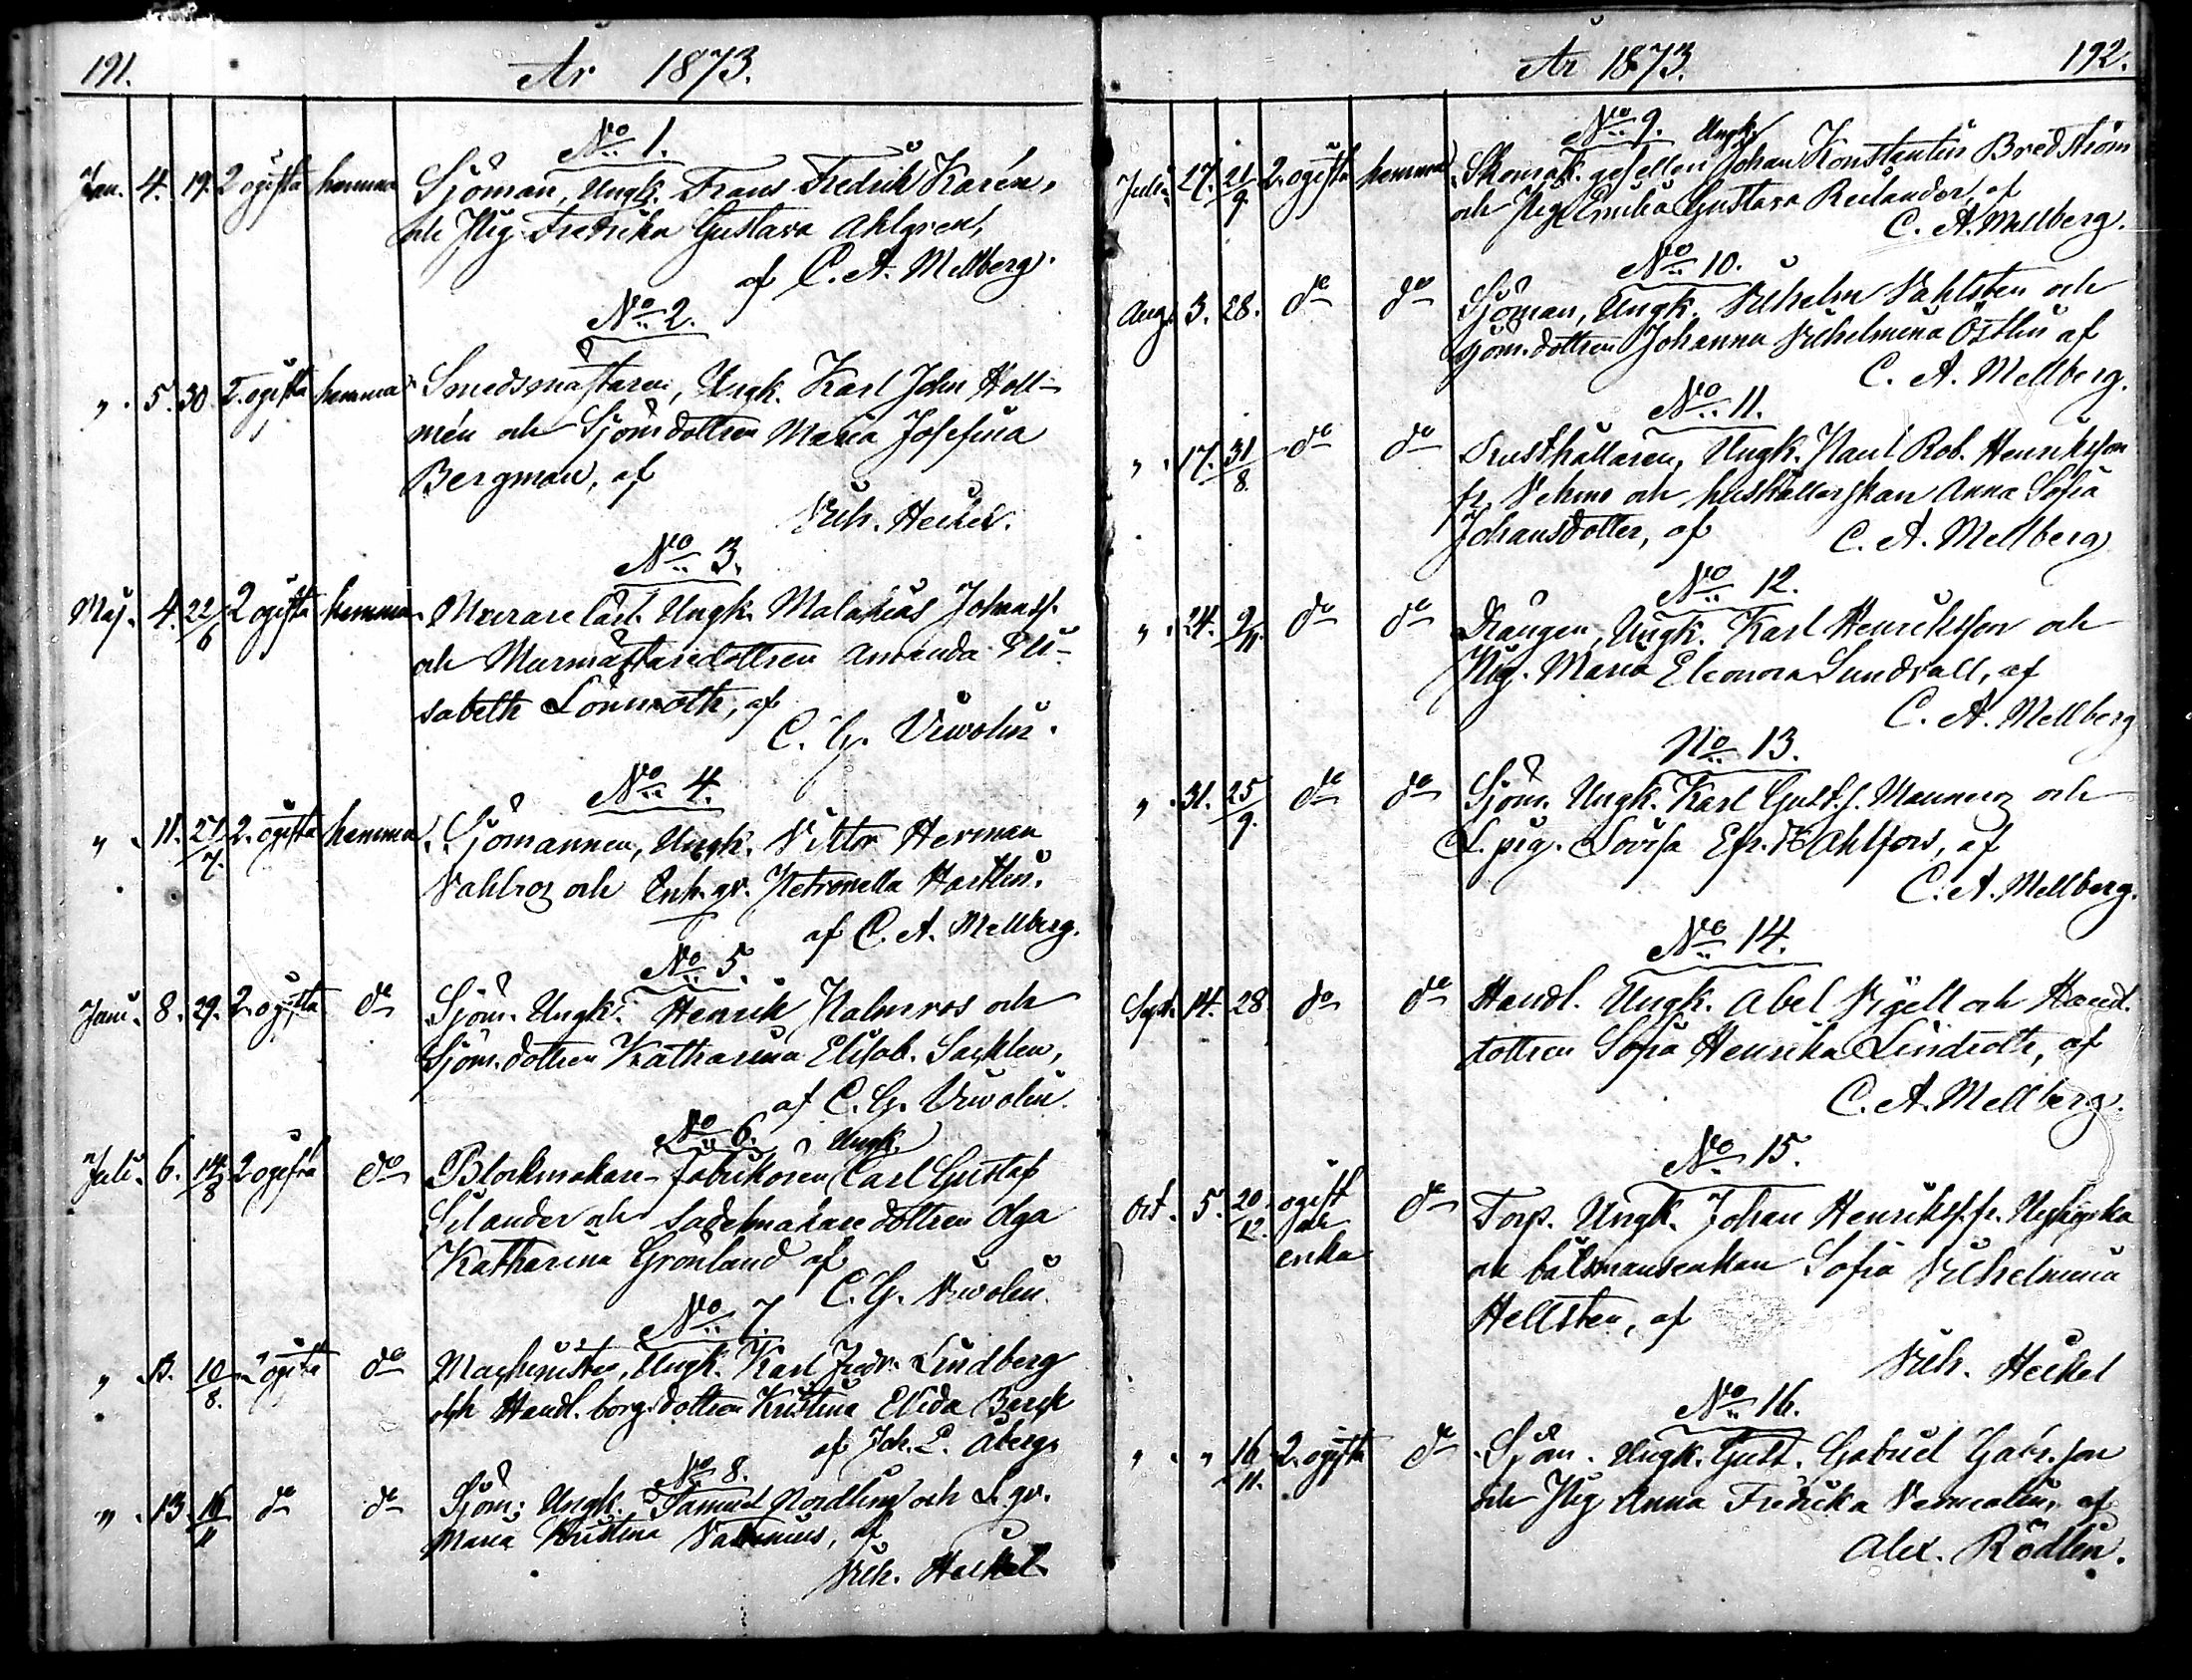 191.
År 1873.
No 1.
Jan. 4. 19. 2 ogifta hemma Sjöman, Ungk. Frans Fredrik Karén,
och Pig. Fredrika Gustava Ahlgren,
af C. A. Mellberg.
No 2.
„ 5. 30. 2. ogifta hemma Smedsmästaren, Ungk. Karl John Holl-
mén och Sjömsdottren Maria Josefina
Bergman, af
Vilh. Heikel.
No 3.
Maj. 4. 22/6 2 ogifta hemma Murarelärl. Ungk. Malakias Johanss.
och Murmästaredottren Amanda Eli-
sabeth Lönnroth, af
C. G. Vivolin.
No 4.
„ 11. 27/7. 2. ogifta hemma Sjömannen, Ungk. Viktor Herman
Vahlroz och Enk. gr. Petronella Hartlin.
af C. A. Mellberg.
No 5.
Juni. 8. 29. 2. ogifta do Sjöm. Ungk. Henrik Palmros och
Sjöm.dottren Katharina Elisab. Sacklen,
af C. G. Vivolin.
No 6. Ungk.
Juli. 6. 14/8 2 ogifta do Blockmakare-fabrikören Carl Gustaf
Silander och Sadelmakaredottren Olga
Katharina Grönland af
C. G. Vivolin.
No 7.
„ 13. 10/8. 2 ogifta do Maschinisten, Ungk. Karl Fredr. Lindberg
och Handl. borg.dottren Kristina Elida Barck
af Joh. E. Åberg.
No 8.
„ 13. 16/11 do do Sjöm. Ungk. Samuel Nordling och L. gr.
Maria Kristina, af
Vilh. Heikel.
192.
År 1873.
No 9. Ungk.
Juli. 27. 21/9. 2. ogifta hemma Skomak. gesellen Johan Konstantin Bredström
och Pig. Emilia Gustava Reilander, af
C. A. Mellberg.
No 10.
Aug. 3. 28. do do Sjöman, Ungk. Vilhelm Vahlsten och
Sjöm.dottren Johanna Vilhelmina Östlin af
C. A. Mellberg.
No 11.
„ 17. 31/8. do do Rusthållaren, Ungk. Paul Rob. Henriksson
fr. Vehmo och hushållerskan Anna Sofia
Johansdotter, af C. A. Mellberg
No 12.
„ 24. 9/11. do do Drängen, Ungk. Karl Henriksson och
Pig. Maria Eleonora Sundvall, af
C. A. Mellberg
No 13.
„ 31. 25/9. do do Sjöm. Ungk. Karl Gust. f. Manneroz och
L. pig. Lovisa Efr. Ahlfors, af
C. A. Mellberg.
No 14.
Sept. 14. 28 do do Handl. Ungk. Abel Vigell och Handl.
dottren Sofia Henrika Lindroth, af
C. A. Mellberg.
No 15.
Oct. 5. 20/12. ogift och enka do Torp. Ungk. Johan Henrikss. fr. Nykyrka
och båtsmansenkan Sofia Vilhelmina
Hellsten, af
Vilh. Heikel
No 16.
„ „ 16/11. 2. ogifta do Sjöm. Ungk. Gust. Gabriel Gabr.son
och Pig Anna Fredrika, af
Alex. Rödlin.